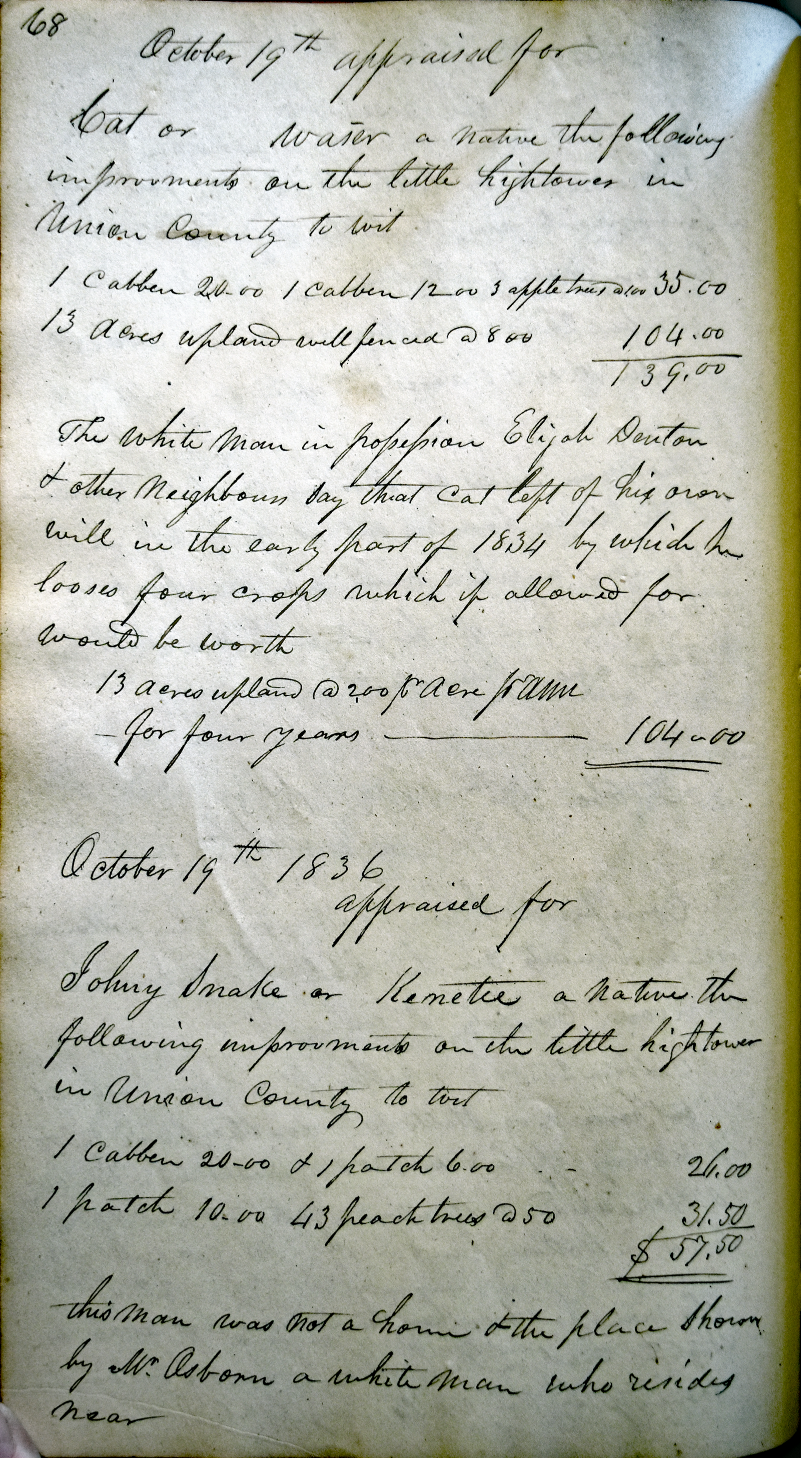 68
October 19th appraised for
Cat or waser a native the following
improvments on the little hightower in
Union County to wit
1 Cabben 20.00 1 cabben 12.00 3 apple trees @1.00 35.00
13 Acres upland well fenced @ 8 00 104.00
139.00
The white man in possession Elijah Denton
& other Neighbours say that Cat left of his own
will in the early part of 1834 by which he
looses four crops which if allowed for
would be worth
13 acres upland @ 2.00 pr Acre pr Ann
for four years 104.00
October 19th 1836
appraised for
Johny Snake or Kenetee a native the
following improvments on the little hightower
in Union County to wit
1 Cabben 20.00 & 1 patch 6.00 26.00
1 patch 10.00 43 peach trees @ 50 31.50
$ 57.50
this man was not a home & the place shown
by Mr. Osborn a white man who resides
near